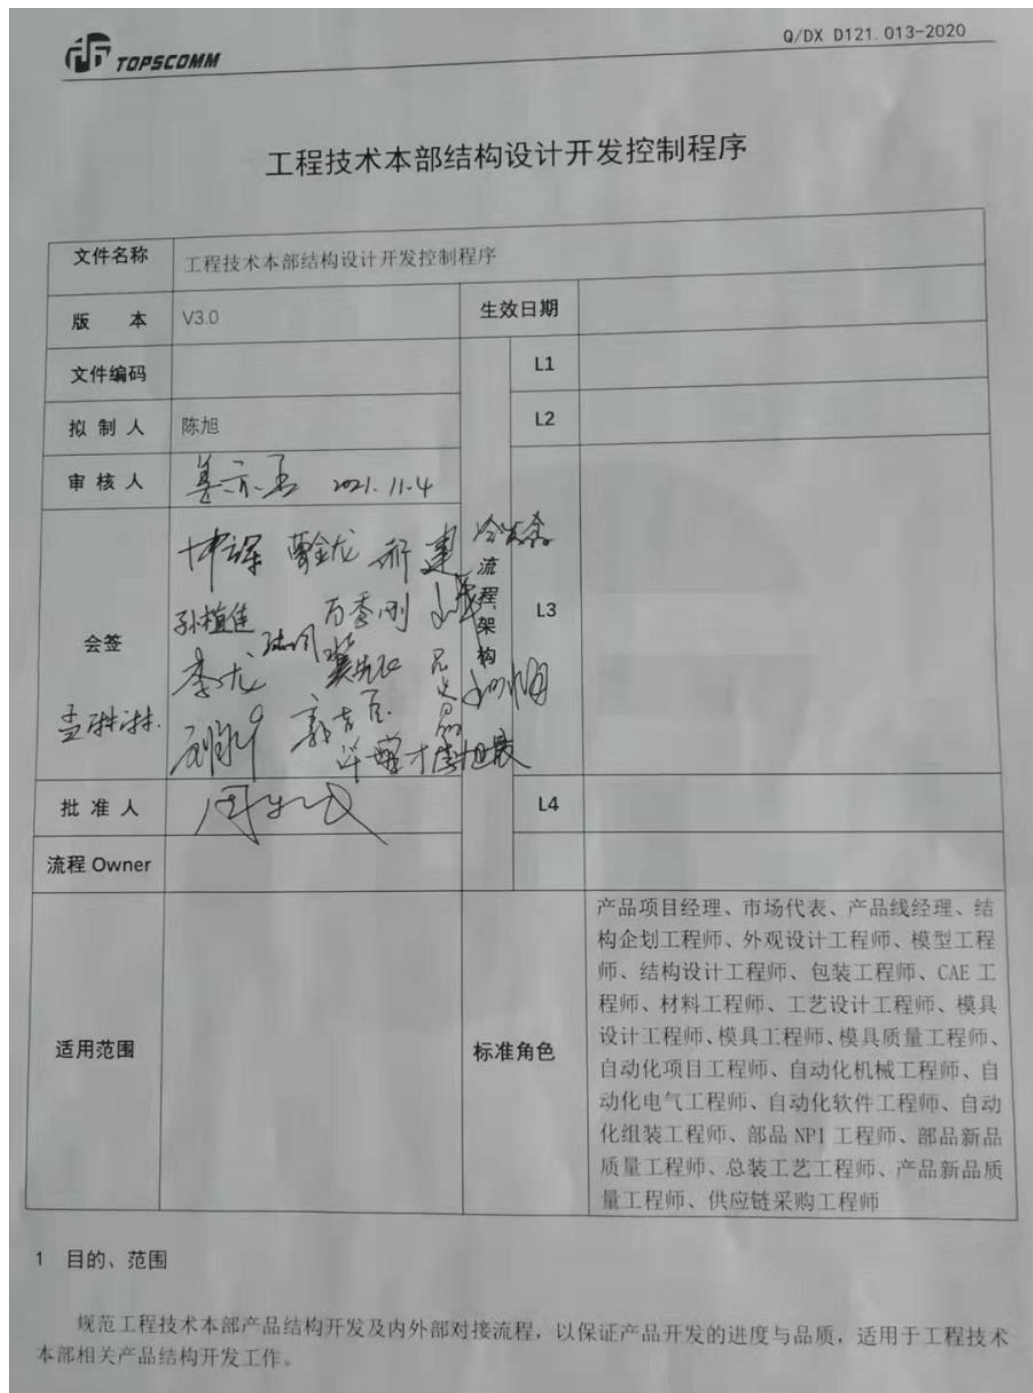 TOPSCOMM
Q/DX D121.013-2020
工程技术本部结构设计开发控制程序
文件名称 工程技术本部结构设计开发控制程序
版 本 V3.0 生效日期
文件编码 L1
拟制人 陈旭 L2
审核人 2021.11.4
流程架构 L3
会签
曹金龙
孙植佳 万季刚
李龙
批准人 L4
流程 Owner
适用范围 标准角色
产品项目经理、市场代表、产品线经理、结
构企划工程师、外观设计工程师、模型工程
师、结构设计工程师、包装工程师、CAE 工
程师、材料工程师、工艺设计工程师、模具
设计工程师、模具工程师、模具质量工程师、
自动化项目工程师、自动化机械工程师、自
动化电气工程师、自动化软件工程师、自动
化组装工程师、部品 NPI 工程师、部品新品
质量工程师、总装工艺工程师、产品新品质
量工程师、供应链采购工程师
1 目的、范围
规范工程技术本部产品结构开发及内外部对接流程，以保证产品开发的进度与品质，适用于工程技术
本部相关产品结构开发工作。